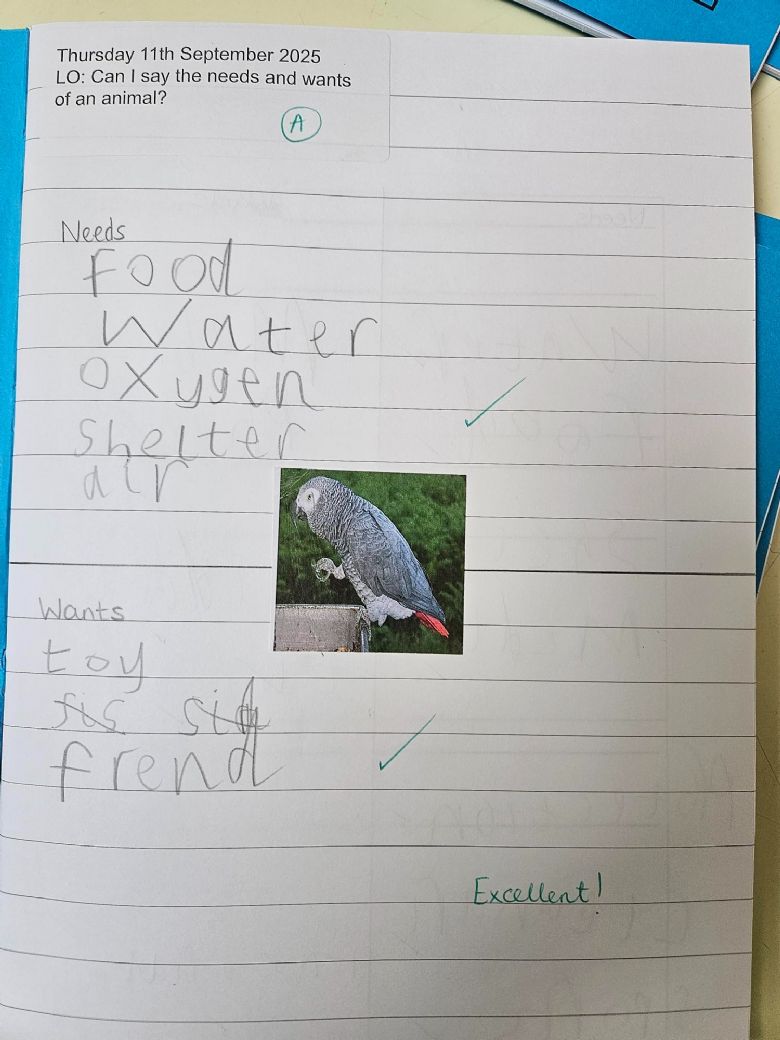 Thursday 11th September 2025
LO: Can I say the needs and wants
of an animal?
A
Needs
Food
Water
oxygen
Shelter
air
Wants
toy
frend
Excellent!